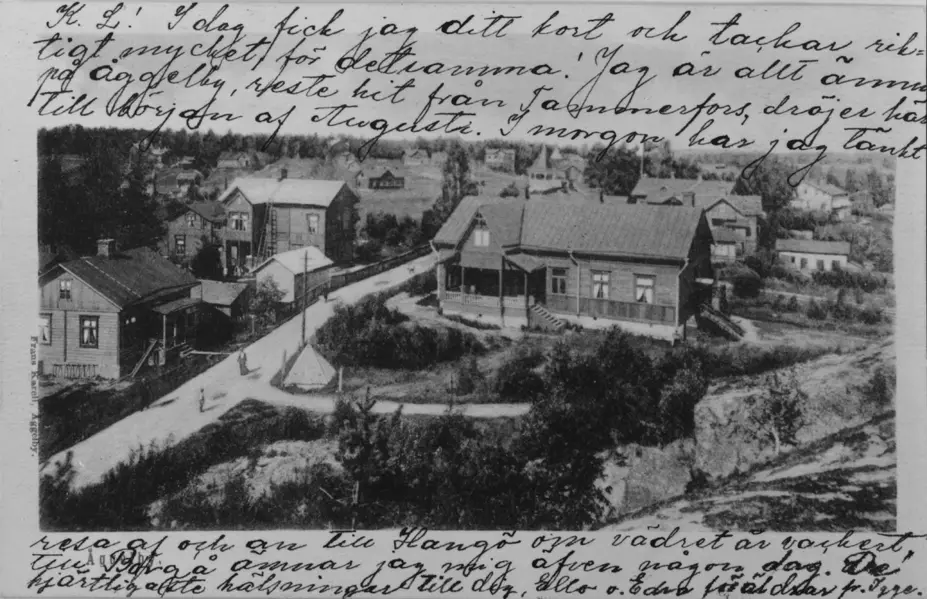 K. L! I dag fick jag ditt kort och tackar rik=
tigt mycket för detsamma! Jag är allt ännu
på Åggelby, reste hit från Tammerfors, dröjer här
till början af Augusti. I morgon har jag tänkt
Frans Karoli, Åggelby.
resa af och an till Hangö om vädret är vackert,
till Borgå ämnar jag mig äfven någon dag. De
hjärtligaste hälsningar till dig, Ello o. Edra föräldrar fr.